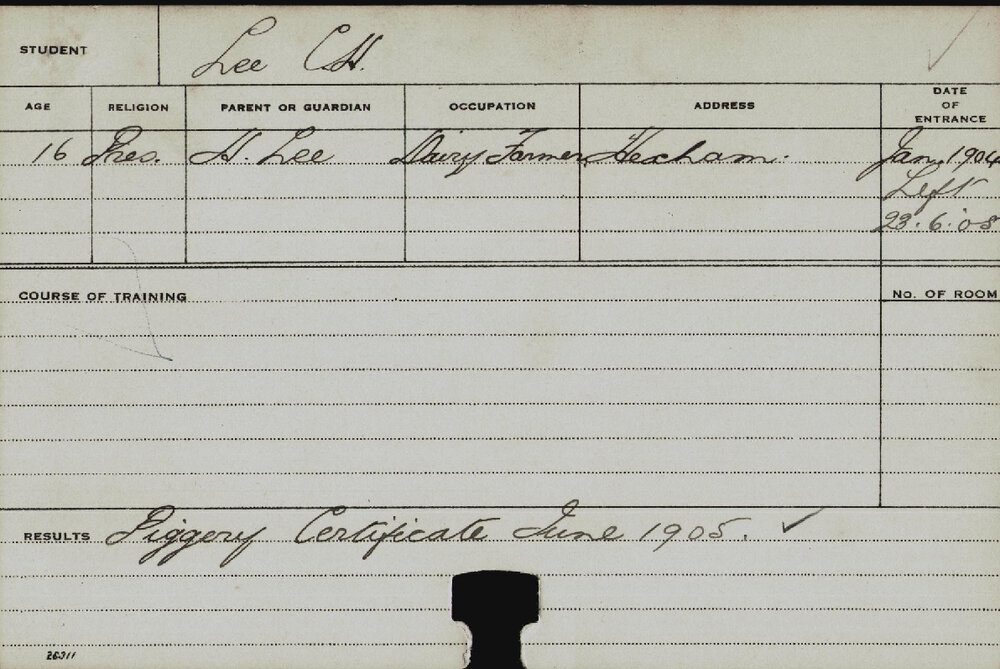 STUDENT Lee C.H.
AGE RELIGION PARENT OR GUARDIAN OCCUPATION ADDRESS DATE OF ENTRANCE
16 Pres. H. Lee Dairy Farmer Hexham. Jan. 1904
Left
23.6.05
COURSE OF TRAINING No. OF ROOM
RESULTS Piggery Certificate June 1905. ✓